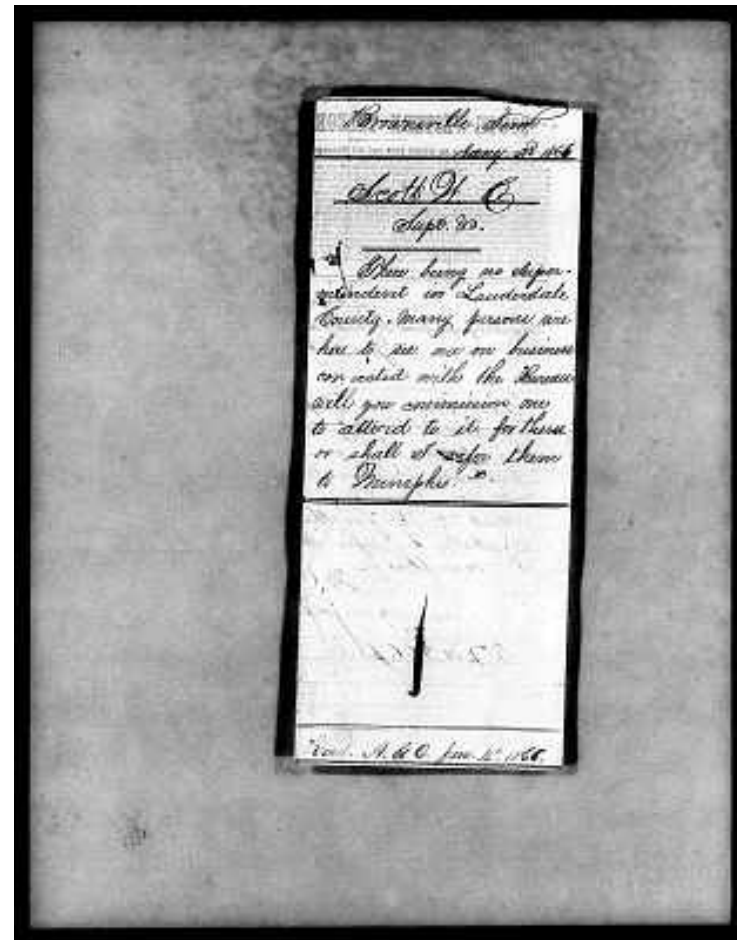 Brownsville Tenn
Jany 1866
Scott W. E
Supt. &c.
There being no super-
intendent in Lauderdale
County. Many persons are
here to see me on business
connected with the Bureau
will you commission one
to attend to it for them
or shall I refer them
to Memphis
Recd. A. & O. Jan. 1866